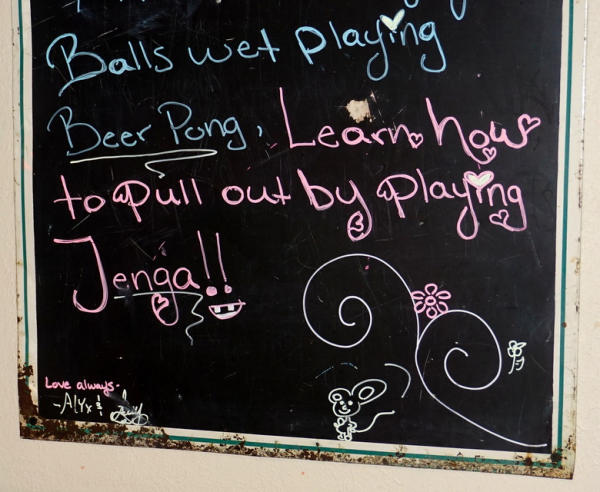 Balls wet playing
Beer Pong, Learn how
to pull out by playing
Jenga!!
Love always-
-Alyx &